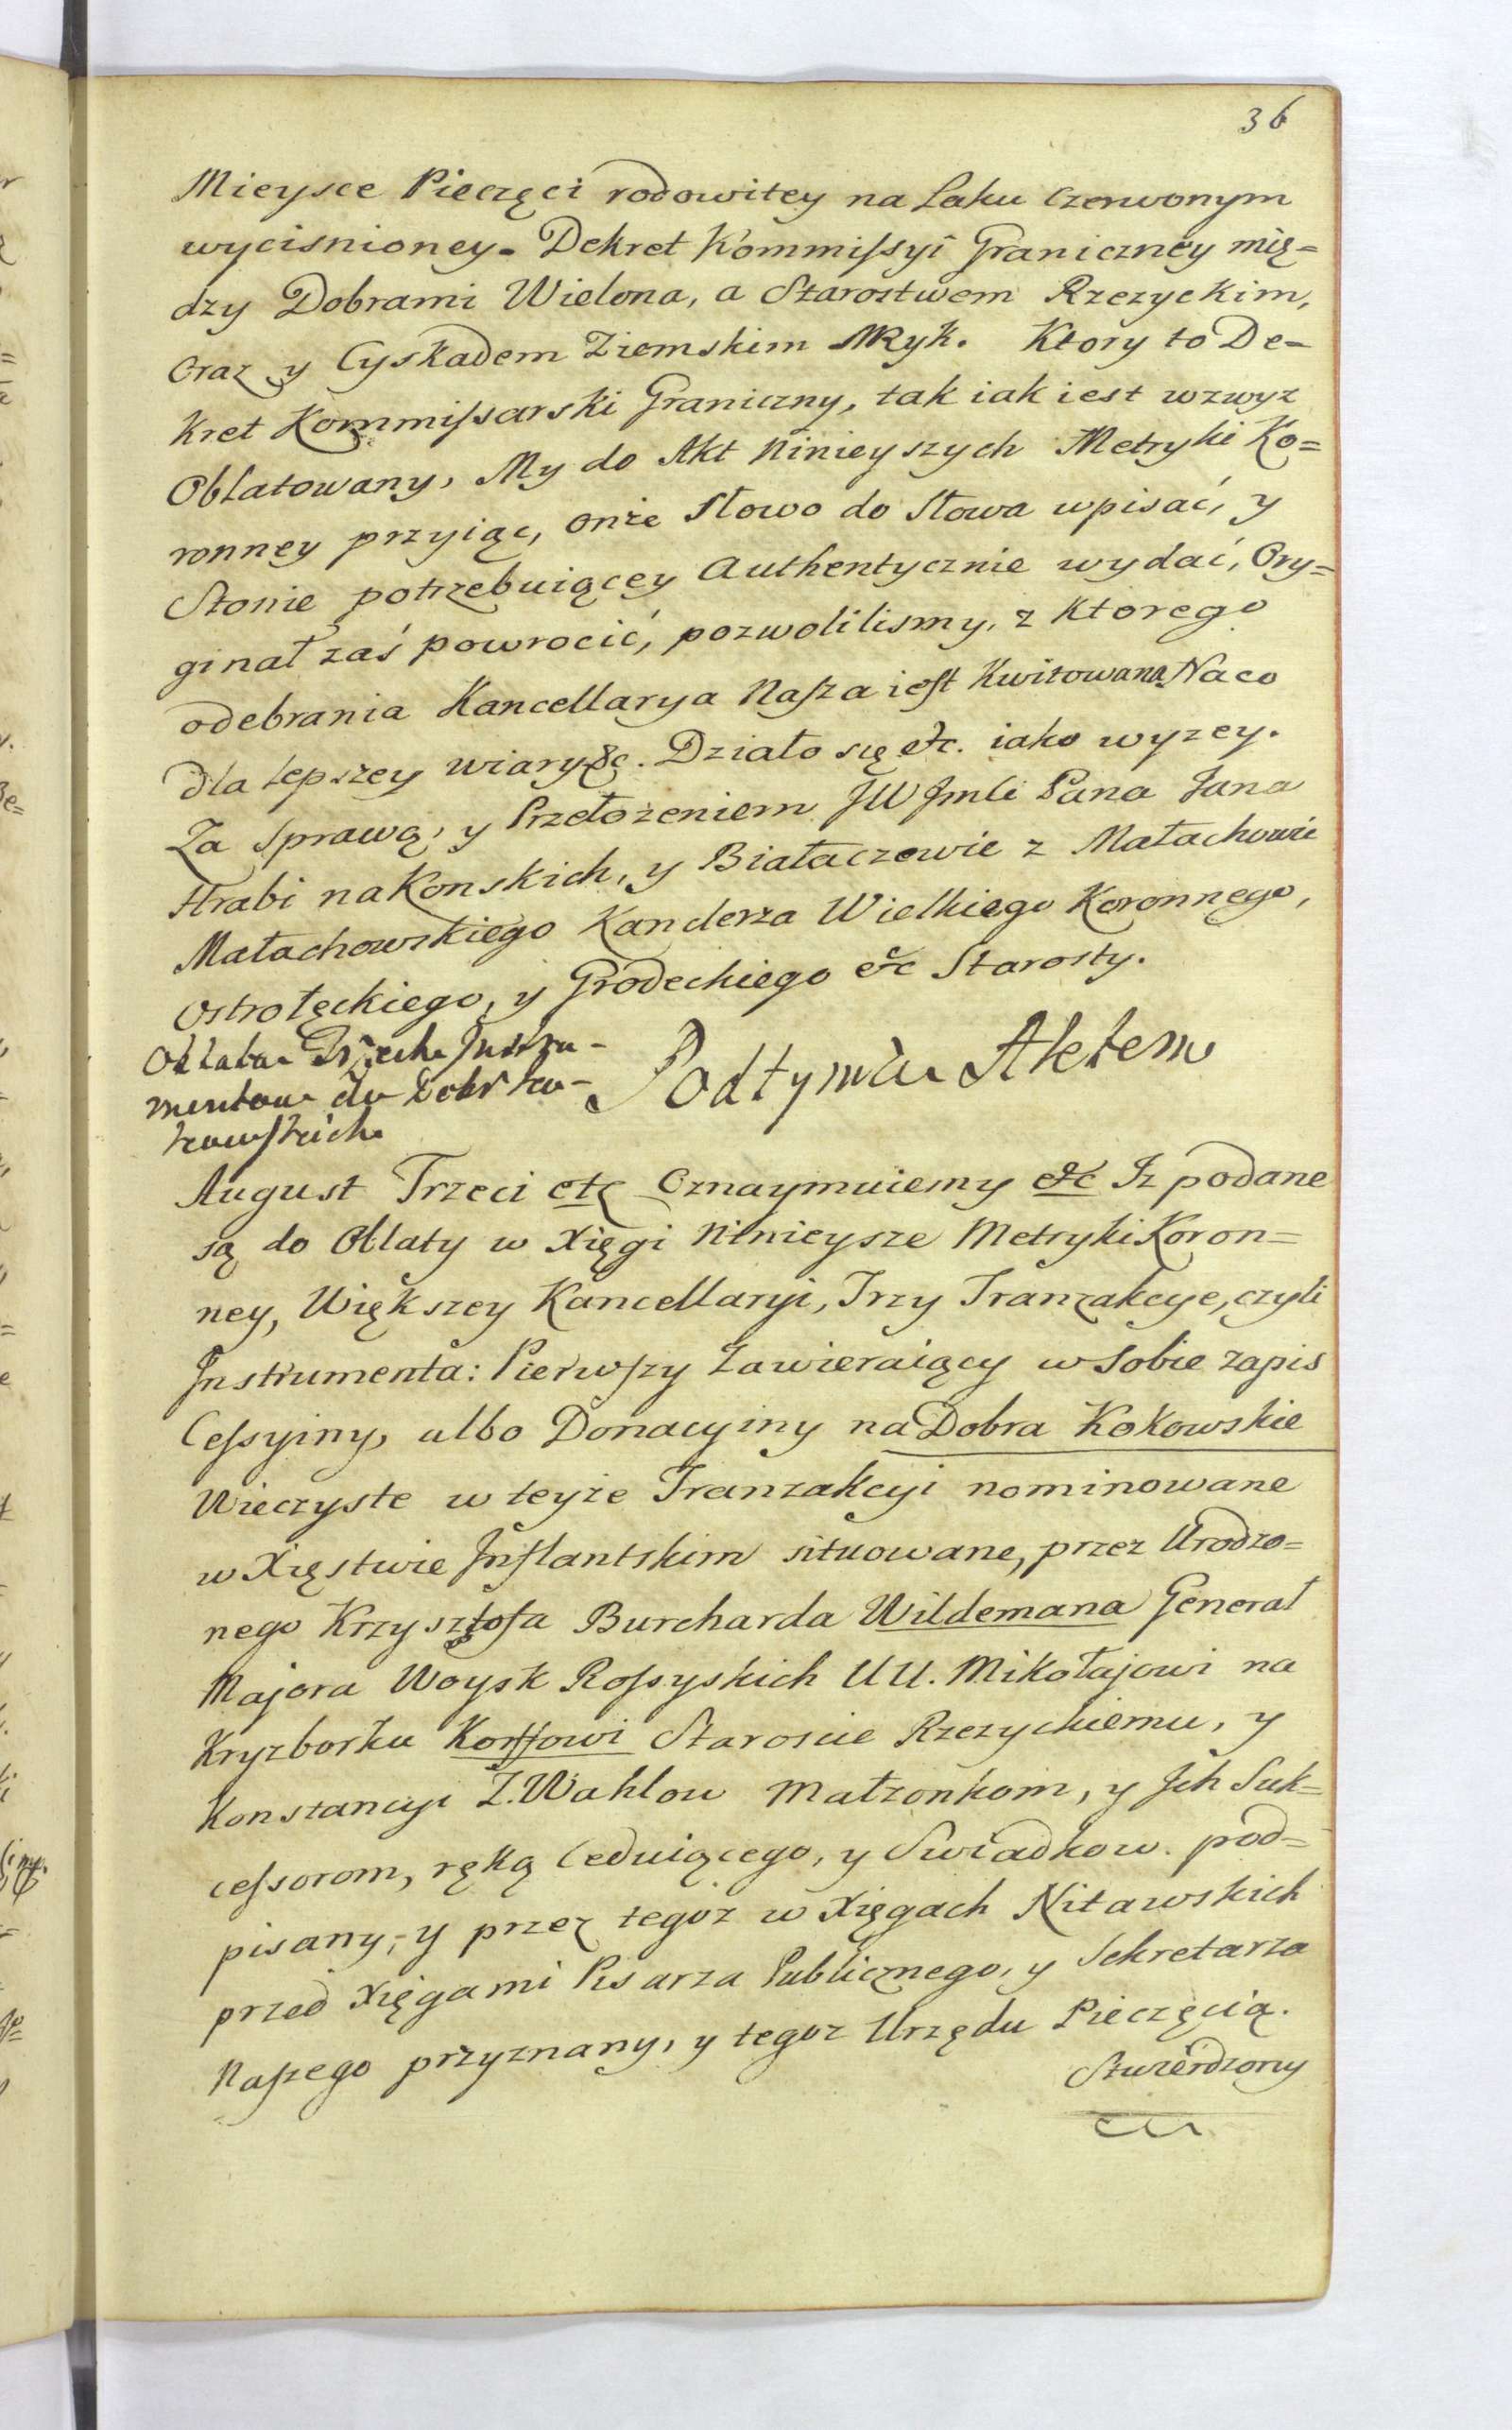 36
Mieysce Pieczęci rodowitey na Laku czerwonym
wycisnioney. Dekret Kommissyi Graniczney mię=
dzy Dobrami Wielona, a Starostwem Rzezyckim,
oraz y Cyskadem Ziemskim Ryk. Ktory to De=
kret Kommissarski Graniczny, tak iak iest wzwyz
Oblatowany, My do Akt ninieyszych Metryki Ko=
ronney przyiąc, onże Słowo do Słowa wpisać, y
Stonie potrzebuiącey Authentycznie wydać, Ory=
ginał zaś powrocić, pozwolilismy, z ktorego
odebrania Kancellarya Nasza iest kwitowana. Na co
dla lepszey wiary &c. Działo się etc. iako wyzey.
Za sprawą, y Przełożeniem JW Jmci Pana Jana
Hrabi na Konskich, y Białaczowie z Małachowic
Małachowskiego Kanclerza Wielkiego Koronnego,
Ostrołęckiego, y Grodeckiego etc Starosty.
Oblata Trzech Instru-
mentow do Dobr Ko-
kowskich
Pod tymże Aktem
August Trzeci etc Oznaymuiemy etc Iz podane
są do Oblaty w Xięgi ninieysze Metryki Koron=
ney, Większey Kancellaryi, Trzy Tranzakcye, czyli
Instrumenta: Pierwszy zawieraiący w sobie zapis
Cessyiny, albo Donacyiny na Dobra Kokowskie
Wieczyste w teyże Tranzakcyi nominowane
w Xięstwie Inflantskim situowane, przez Urodzo=
nego Krzysztofa Burcharda Wildemana Generał
Majora Woysk Rossyskich UU. Mikołajowi na
Kryzborku Korffowi Staroscie Rzezyckiemu, y
Konstancyi Z. Wahlow Małzonkom, y Ich Suk=
cessorom, ręką Ceduiącego, y Swiadkow pod=
pisany, y przez tegoż w Xięgach Nitawskich
przed Xięgami Pisarza Publicznego, y Sekretarza
Naszego przyznany, y tegoz Urzędu Pieczęcią.
Stwierdzony